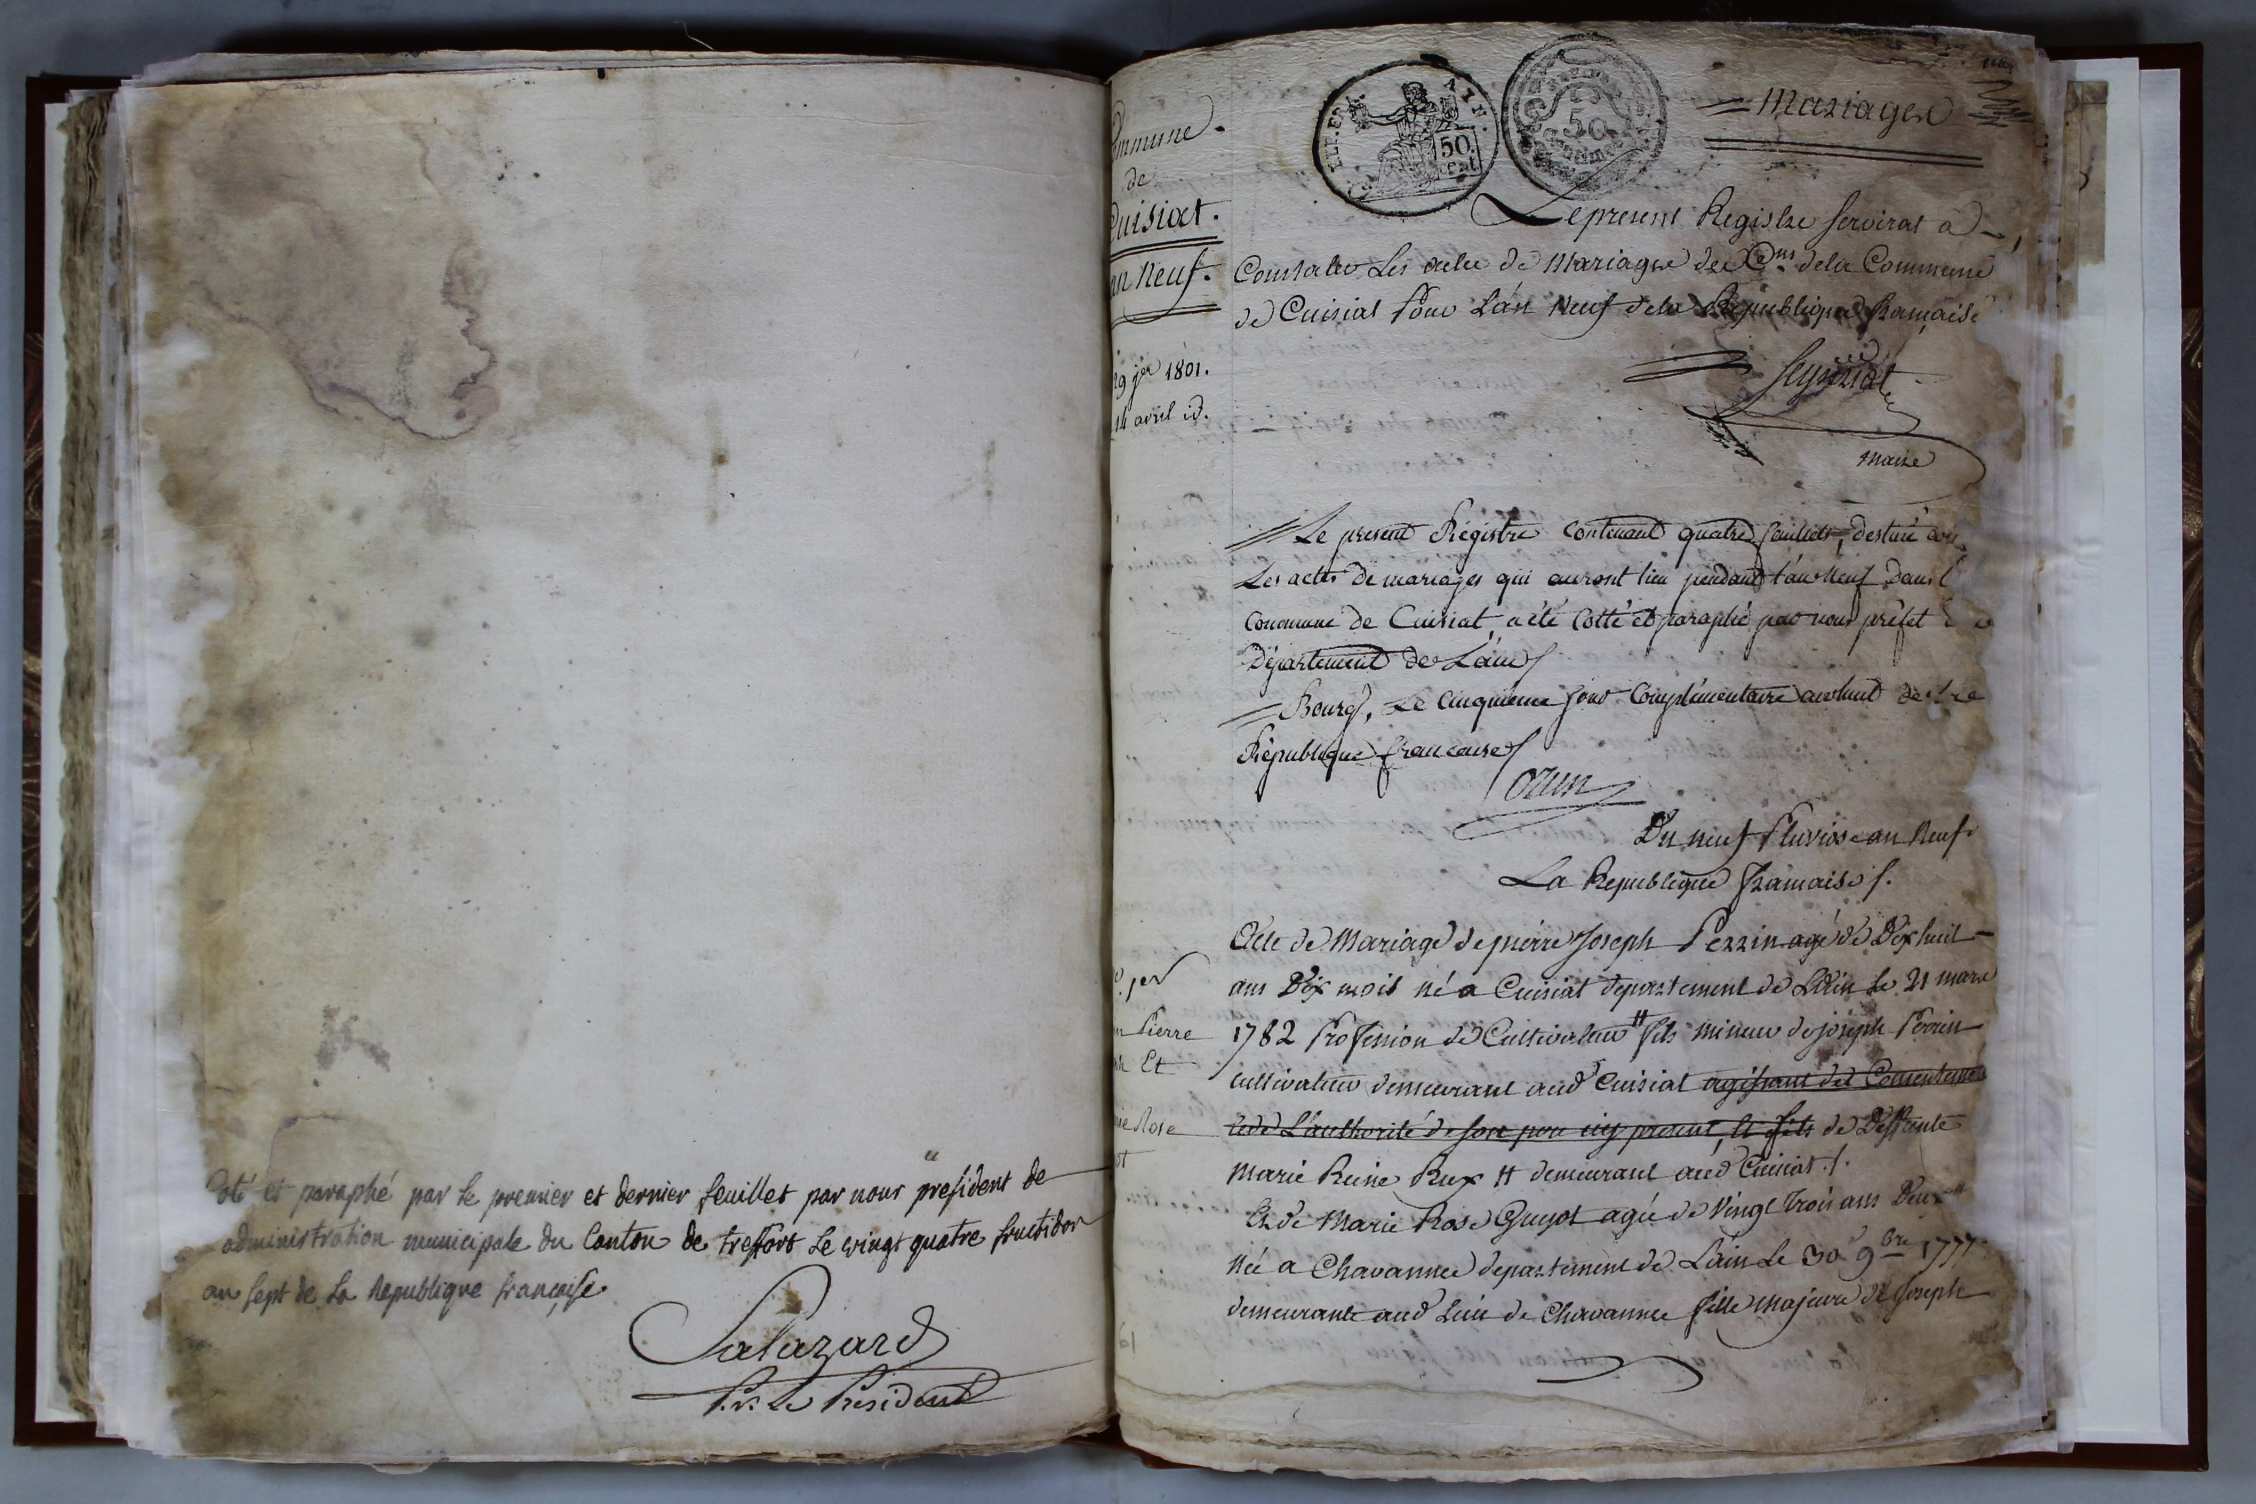 Coté et paraphé par le premier et dernier feuillet par nous président de
administration municipale du Canton de treffort Le vingt quatre fructidor
an sept de La République française
Salazard
P.r. Le Président
Commune
de
Cuisiat.
an Neuf.
29 jer 1801.
14 avril id.
50
Cent
50
Centimes
Mariages
Le present Registre servirat a
Constater Les actes de Mariages des Cens de la Commune
de Cuisiat Pour L'an Neuf de la Republique francaise
maire
Le present Régistre Contenant quatre feuillets, destiné
Les actes de mariages qui auront lieu pendant l'an Neuf dans
Commune de Cuisiat, a été Cotté et paraphé par nous préfet
Département de L'ain
Bourg, Le Cinquieme jour Complémentaire an huit de
République française
Ozun
Du neuf Pluviose an Neuf
La Republique francaise
Acte de Mariage de pierre Joseph Perrin agé de Dix huit
ans Dix mois né a Cuisiat departement de L'Ain le 21 mars
1782 Profession de Cultivateur # fils mineur de joseph Perrin
cultivateur demeurant aud Cuisiat agissant du Consentement
et de L'authorité de son pere icy present, et fils de Deffunte
Marie Reine Rux # demeurant aud Cuisiat
Et de Marie Rose Guyot agée de Vingt trois ans Deux
Née a Chavannes departement de L'ain Le 30 9bre 1777
demeurante aud Lieu de Chavannes fille majeure de Joseph
Pierre
Et
Rose